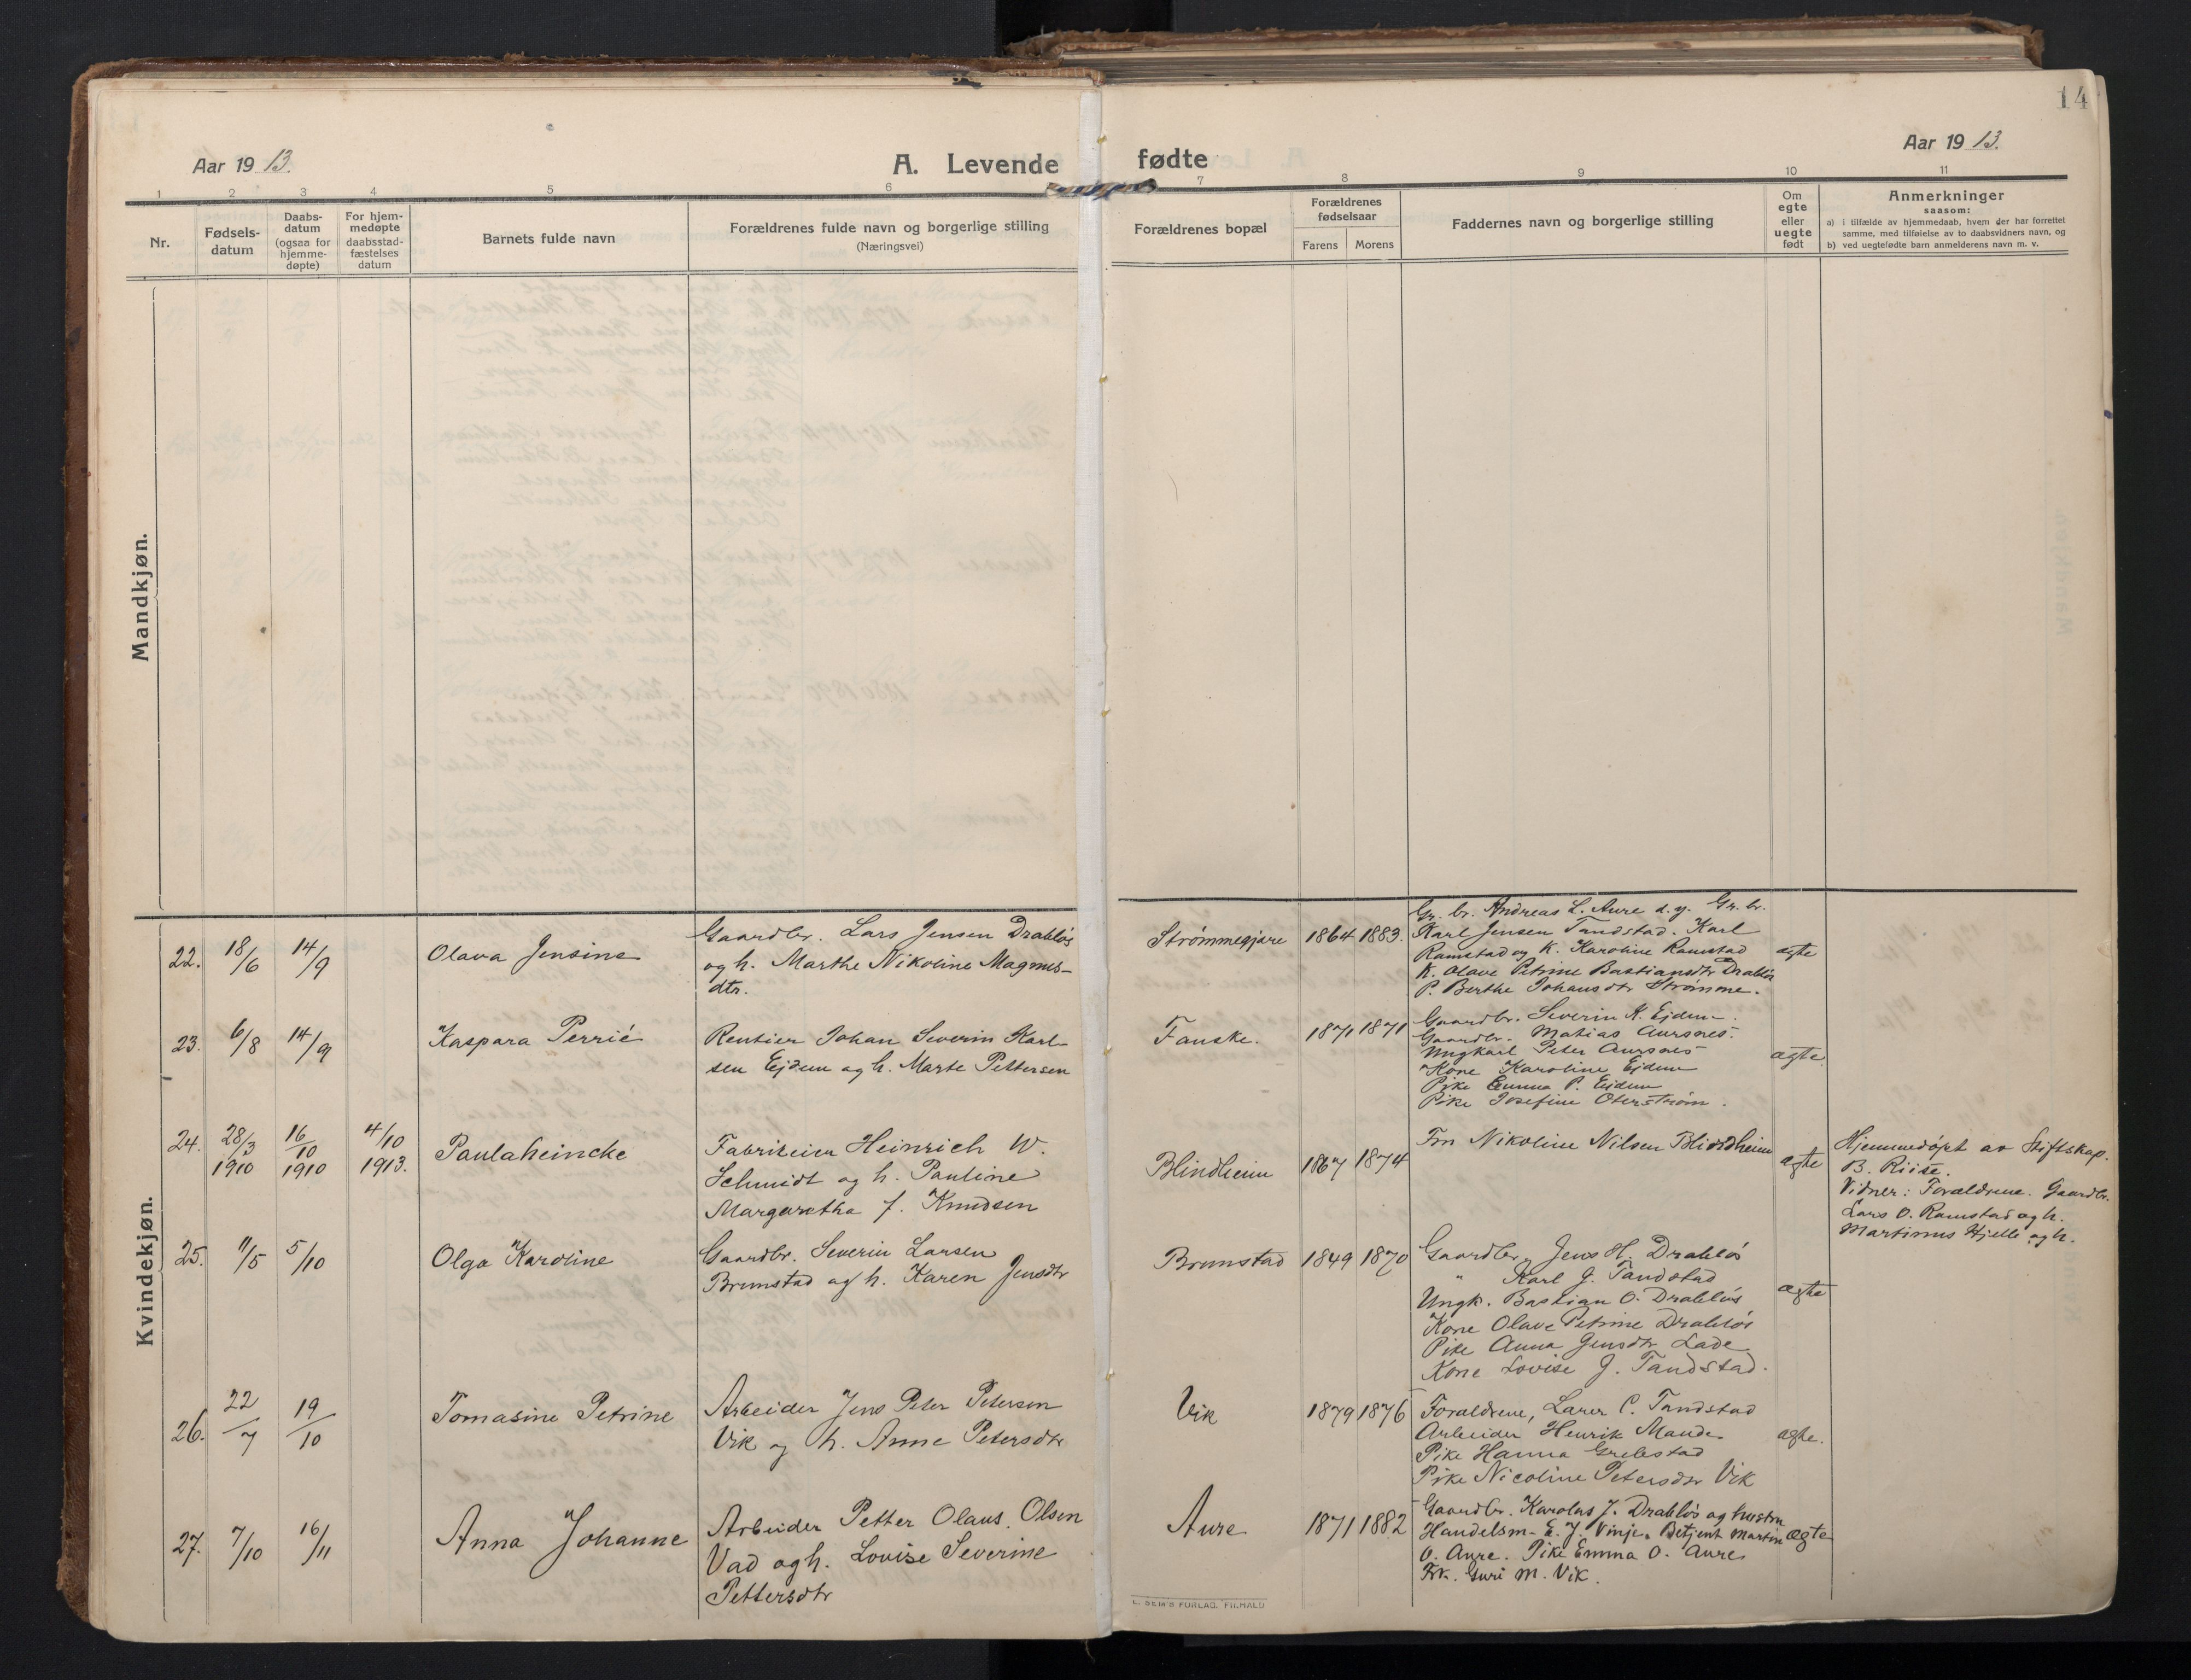 14
Aar 1913.
A. Levende fødte
Aar 1913.
1 2 3 4 5 6 7 8 9 10 11
Nr.
Fødsels-
datum
Daabs-
datum
(ogsaa for
hjemme-
døpte)
For hjem-
medøpte
daabsstad-
fæstelses
datum
Barnets fulde navn
Forældrenes fulde navn og borgerlige stilling
(Næringsvei)
Forældrenes bopæl
Forældrenes
fødselsaar
Farens Morens
Faddernes navn og borgerlige stilling
Om
egte
eller
uegte
født
Anmerkninger
saasom:
a) i tilfælde av hjemmedaab, hvem der har forrettet
samme, med tilføielse av to daabsvidners navn, og
b) ved uegtefødte barn anmelderens navn m. v.
Mandkjøn.
Kvindekjøn.
22. 18/6 14/9
Olava Jensine
Gaardbr. Lars Jensen Drabløs
og h. Marthe Nikoline Magnus-
dtr.
Strømmegjære 1864 1883.
Gr. br. Andreas L. Aure d.y. Gr. br.
Karl Jensen Tandstad. Karl
Ramstad og K. Karoline Ramstad
K. Olave Petrine Bastiansdtr Drabløs
P. Berthe Johansdtr Strømme.
ægte
23. 6/8 14/9
Kaspara Perrié
Rentier Johan Severin Karl-
sen Ejdem og h. Marte Pettersen
Fauske. 1871 1871
Gaardbr. Severin K. Ejdem.
Gaardbr. Matias Aursnes.
Ungkarl Peter Aursnes
Kone Karoline Ejdem
Pike Emma P. Ejdem
Pike Josefine Oterstrøm.
ægte
24. 28/3 1910 16/10 1910 4/10 1913.
Paulaheincke
Fabrikeier Heinrich W.
Schmidt og h. Pauline
Margaretha f. Knudsen
Blindheim 1867 1874
Frn Nikoline Nilsen Blindheim
ægte
Hjemmedøpt av Stiftskap.
B. Riise.
Vidner: Forældrene. Gaardbr.
Lars O. Ramstad og h.
Martinus Hjelle og h.
25. 11/5 5/10
Olga Karoline
Gaardbr. Severin Larsen
Brunstad og h. Karen Jensdtr
Brunstad 1849 1870
Gaardbr. Jens H. Drabløs
" Karl J. Tandstad
Ungk. Bastian O. Drabløs
Kone Olave Petrine Drabløs
Pike Anna Jensdtr Lade
Kone Lovise J. Tandstad.
ægte
26. 22/7 19/10
Tomasine Petrine
Arbeider Jens Peter Petersen
Vik og h. Anne Petersdtr
Vik 1879 1876
Forældrene, Lærer C. Tandstad
Arbeider Henrik Mande
Pike Hanna Grebstad
Pike Nicoline Petersdtr Vik
ægte.
27. 7/10 16/11
Anna Johanne
Arbeider Petter Olaus Olsen
Vad og h. Lovise Severine
Pettersdtr
Aure 1871 1882
Gaardbr. Karolus J. Drabløs og hustru
Handelsm. E. J. Vinje. Betjent Martin
O. Aure. Pike Emma O. Aure
Frk. Guri M. Vik.
ægte